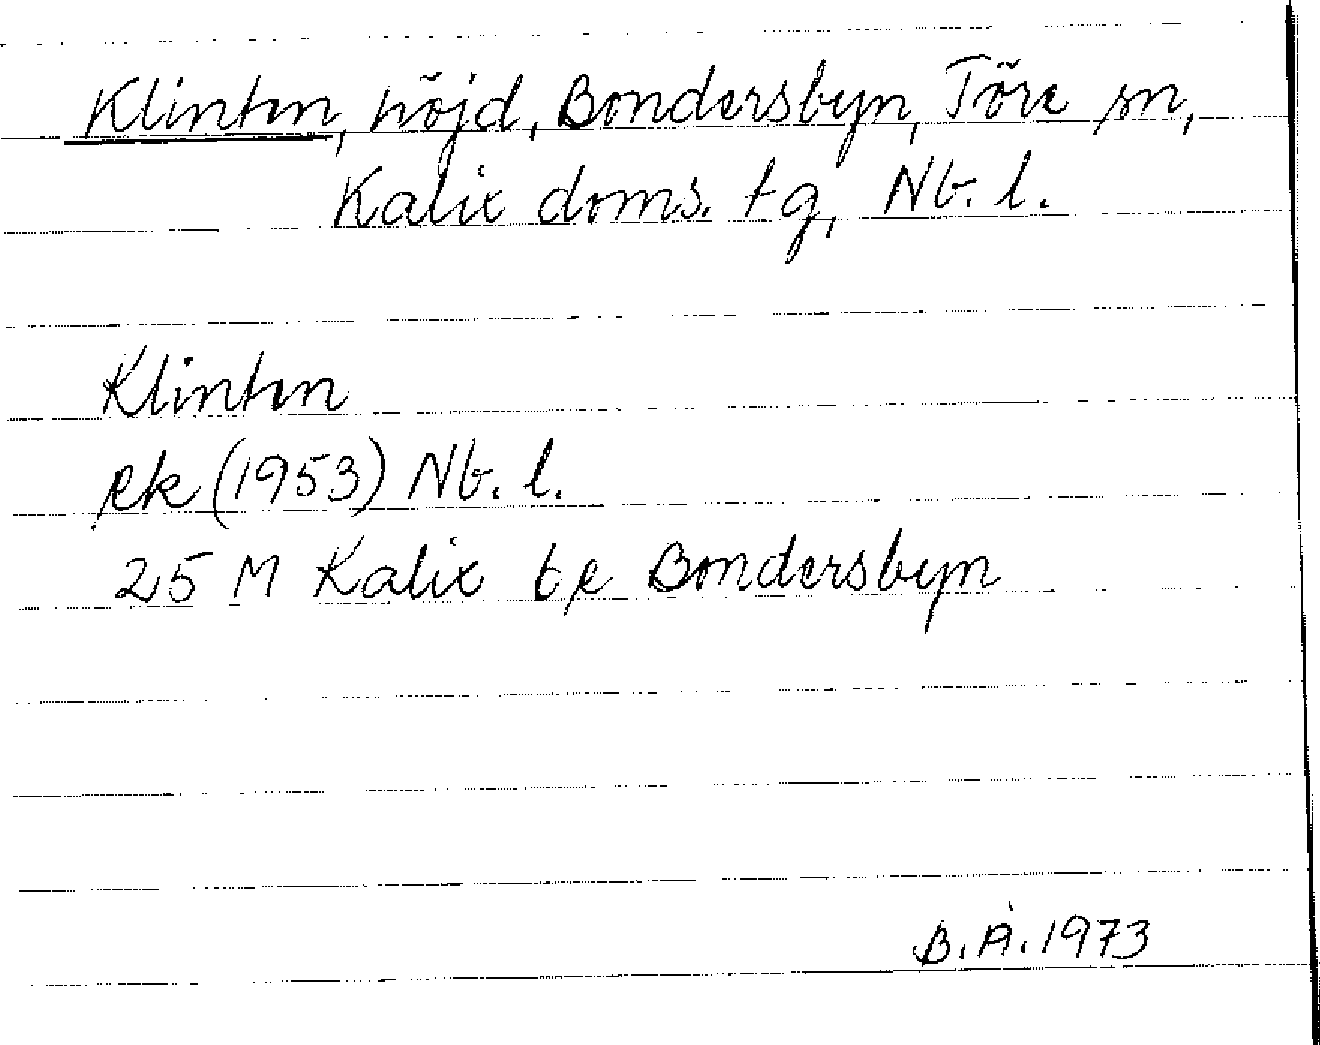 Klinten, höjd, Bondersbyn, Töre sn,
Kalix doms. tg, Nb. l.
Klinten
ek (1953) Nb. l.
25 M Kalix be Bondersbyn
B. Å. 1973